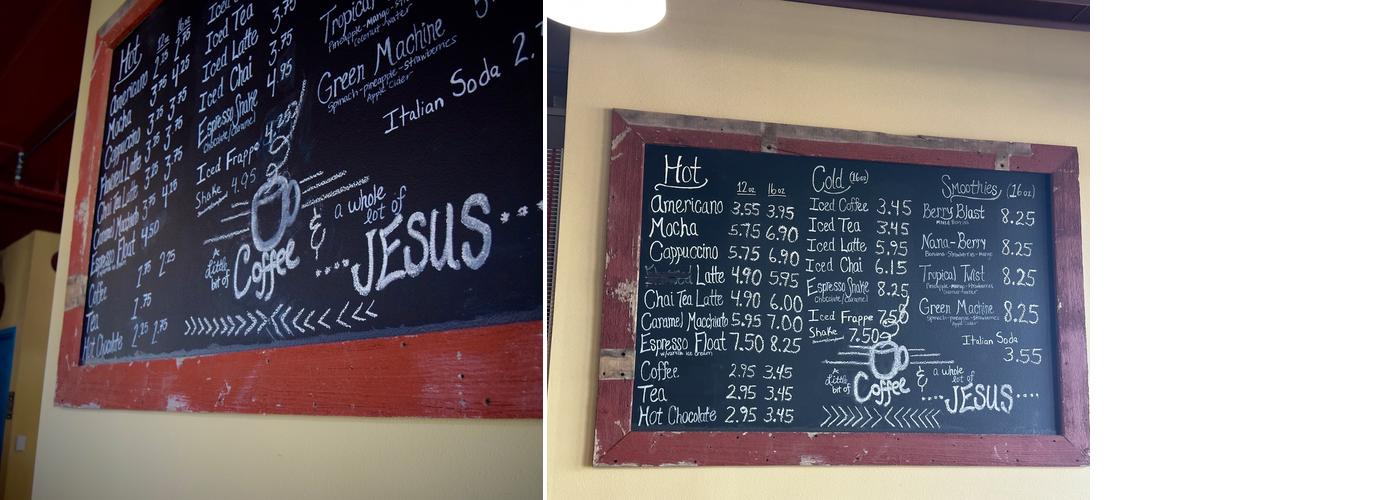 Hot 12oz 16oz
Americano 2.25 2.75
Mocha 3.75 4.25
Cappuccino 3.25 3.75
Latte 3.25 3.75
Chai Tea Latte 3.25 3.75
Caramel Macchiato 3.75 4.25
Espresso Float 4.50
Coffee 1.75 2.25
Tea 1.75
Hot Chocolate 2.25 2.75
Iced Tea
Iced Latte 3.75
Iced Chai 3.75
Espresso Shake 4.95
Chocolate/Caramel
Iced Frappe 4.25
Shake 4.95
Tropical
Pineapple-Mango-
Coconut-Water
Green Machine
Spinach-pineapple-strawberries
Apple Cider
Italian Soda 2.
a Little
bit of
Coffee
&
a whole
lot of
JESUS
Hot
12oz 16oz
Americano 3.55 3.95
Mocha 5.75 6.90
Cappuccino 5.75 6.90
Latte 4.90 5.95
Chai Tea Latte 4.90 6.00
Caramel Macchiato 5.95 7.00
Espresso Float 7.50 8.25
w/vanilla ice cream
Coffee 2.95 3.45
Tea 2.95 3.45
Hot Chocolate 2.95 3.45
Cold (16oz)
Iced Coffee 3.45
Iced Tea 3.45
Iced Latte 5.95
Iced Chai 6.15
Espresso Shake 8.25
Chocolate/Caramel
Iced Frappe 7.58
Shake 7.50
Smoothies (16oz)
Berry Blast 8.25
Mixed Berries
Nana-Berry 8.25
Banana-Strawberries-Mango
Tropical Twist 8.25
Pineapple-Mango-Strawberries
Coconut-Water
Green Machine 8.25
Spinach-pineapple-strawberries
Apple Cider
Italian Soda
3.55
a Little
bit of
Coffee
&
a whole
lot of
JESUS